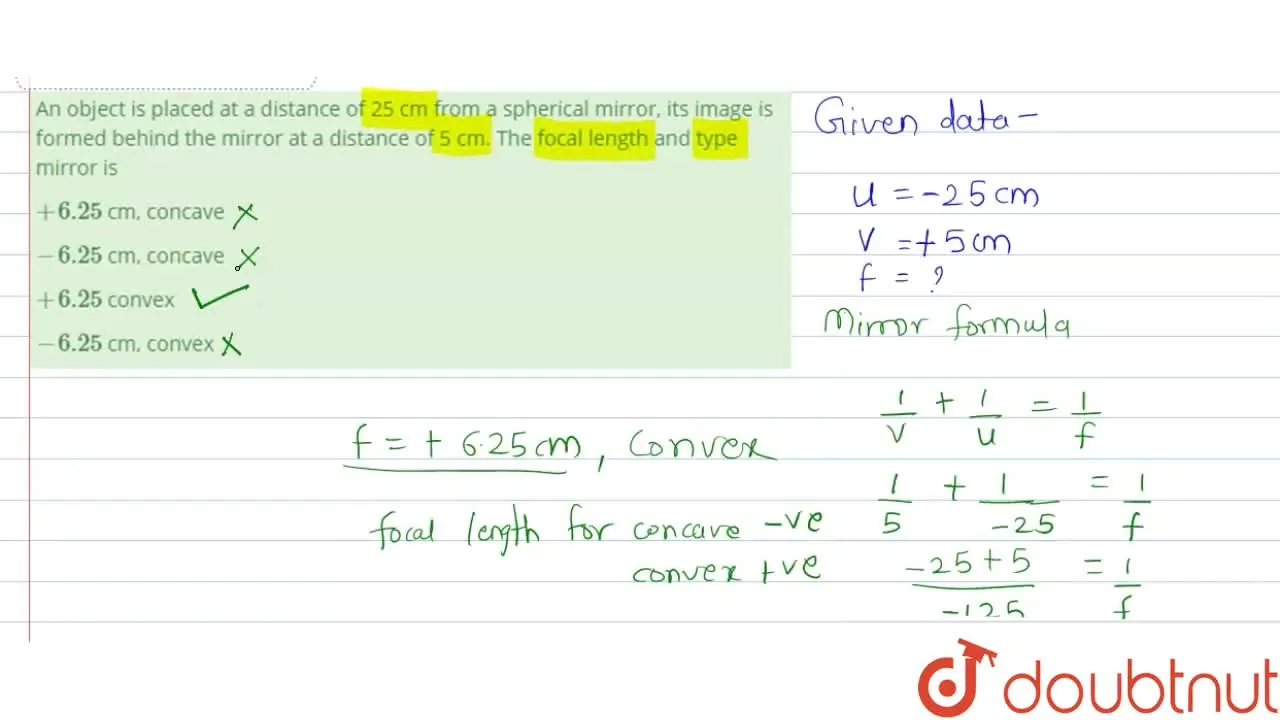 An object is placed at a distance of 25 cm from a spherical mirror, its image is
formed behind the mirror at a distance of 5 cm. The focal length and type
mirror is
+6.25 cm, concave ×
−6.25 cm, concave ×
+6.25 convex ✓
−6.25 cm, convex ×
Given data -
u = -25 cm
v = +5 cm
f = ?
Mirror formula
1/v + 1/u = 1/f
1/5 + 1/-25 = 1/f
-25+5/-125 = 1/f
f = + 6.25 cm, Convex
focal length for concave -ve
convex +ve
doubtnut